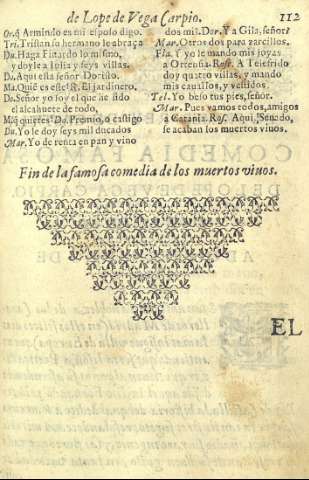 de Lope de Vega Carpio. 112
Or.q̃ Armindo es mi esposo digo.
Tri. Tristan su hermano le abraça
Du. Haga Fisardo lo mismo,
y doyle a Iulia y seys villas.
Da. Aqui està señor Doristo.
Ma. Quiẽ es este? R. El jardinero.
Do. Señor yo soy el que he sido
el alcahuete de todo,
Ma. q̃ quieres? Do. Premio, o castigo
Du. Yo le doy seys mil ducados
Mar. Yo de renta en pan y vino
dos mil. Dor. Y a Gila, señor?
Mar. Otros dos para zarcillos.
Fla. Y yo le mando mis joyas
a Ortensia. Ros. A Telefrido
doy quatro villas, y mando
mis cauallos, y vestidos
Tel. Yo beso tus pies, señor.
Mar. Pues vamos todos, amigos
a Catania. Ros. Aqui, Senado,
se acaban los muertos viuos.
Fin de la famosa comedia de los muertos viuos.
EL